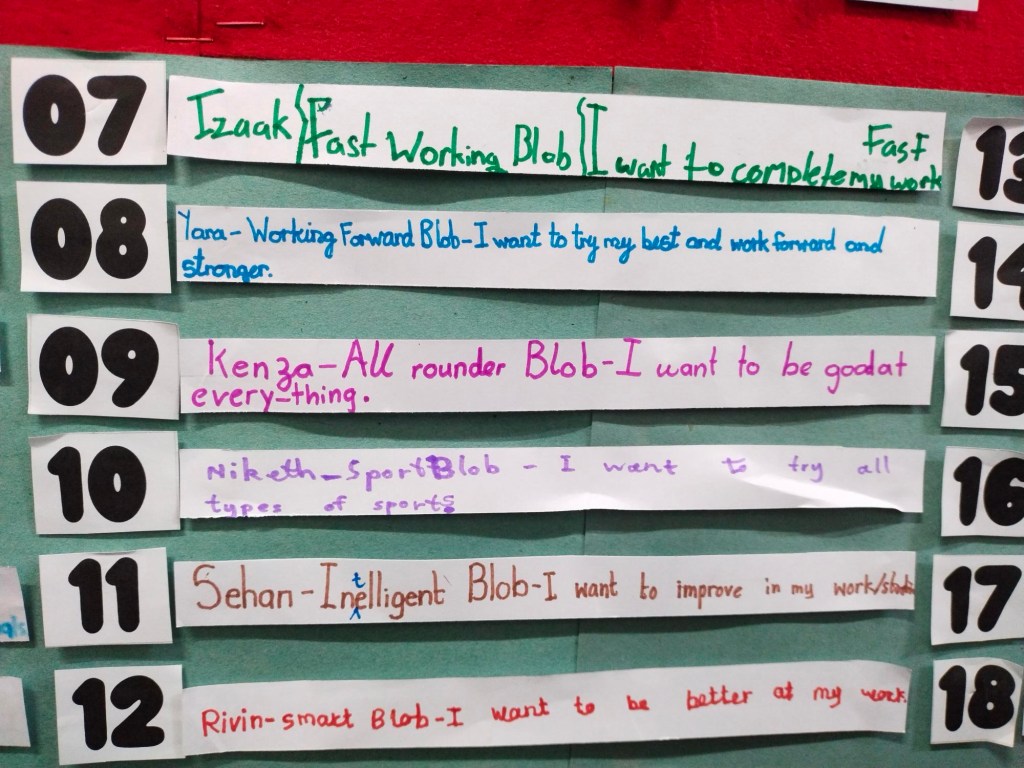 07 Izaak}Fast Working Blob{I want to complete my work Fast 13
08 Yara-Working Forward Blob-I want to try my best and work forward and
stronger. 14
09 Kenza-All rounder Blob-I want to be good at
every-thing. 15
10 Niketh-Sport Blob - I want to try all
types of sports 16
11 Sehan-Intelligent Blob-I want to improve in my work/ 17
12 Rivin-smart Blob-I want to be better at my work. 18